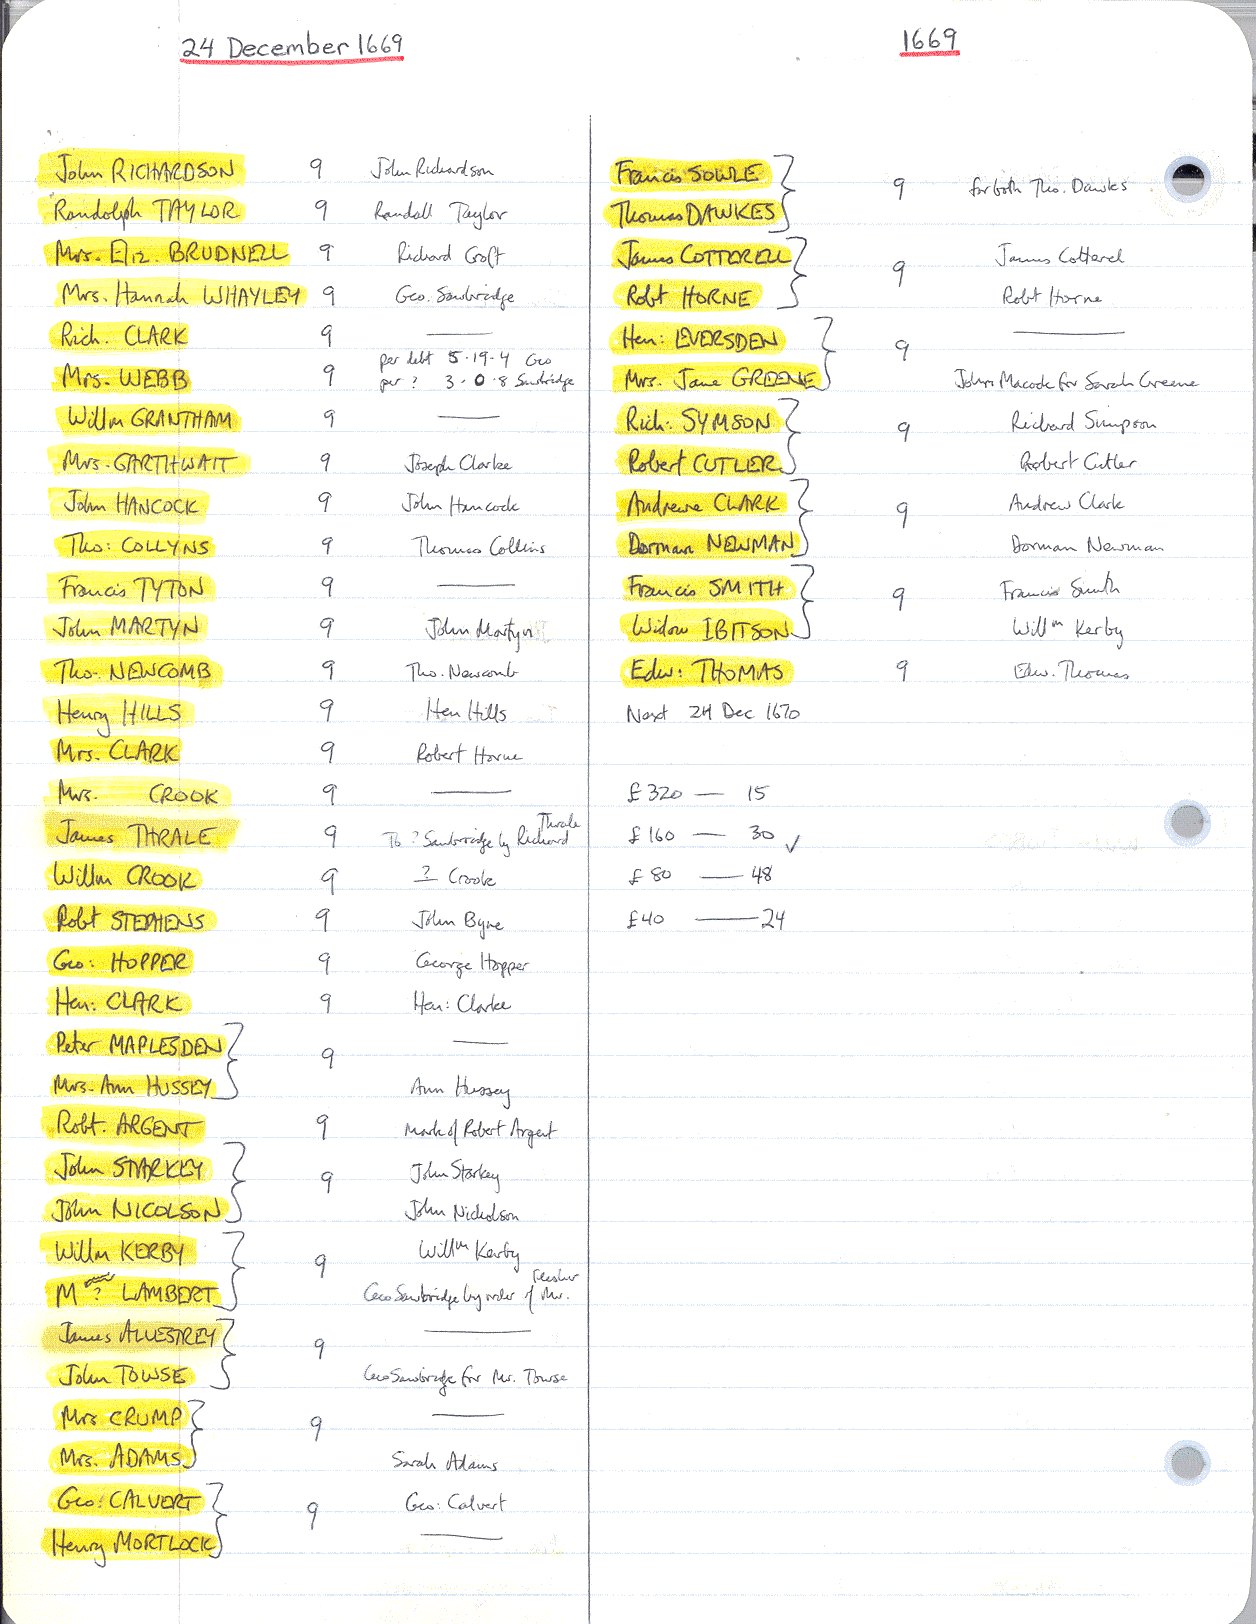 24 December 1669
John RICHARDSON 9 John Richardson
Randolph TAYLOR 9 Randall Taylor
Mrs. Eliz. BRUDNELL 9 Richard Croft
Mrs. Hannah WHAYLEY 9 Geo. Sawbridge
Rich. CLARK 9 —
per debt 5-19-4 Geo
Mrs. WEBB 9 per ? 3-0-8 Sawbridge
Willm GRANTHAM 9 —
Mrs. GARTHWAIT 9 Joseph Clarke
John HANCOCK 9 John Hancock
Tho: COLLYNS 9 Thomas Collins
Francis TYTON 9 —
John MARTYN 9 John Martyn
Tho. NEWCOMB 9 Tho. Newcomb
Henry HILLS 9 Hen Hills
Mrs. CLARK 9 Robert Horne
Mrs. CROOK 9 —
Thrale
James THRALE 9 To ? Sawbridge by Richard
Willm CROOK 9 ? Crooke
Robt STEPHENS 9 John Byne
Geo: HOPPER 9 George Hopper
Hen: CLARK 9 Hen: Clarke
Peter MAPLESDEN } 9 —
Mrs. Ann HUSSEY Ann Hussey
Robt. ARGENT 9 Mark of Robert Argent
John STARKEY } 9 John Starkey
John NICOLSON John Nicholson
Willm KERBY } 9 Willm Kerby
Flesher
M ? LAMBERT Geo Sawbridge by order of Mr.
James ALLESTREY } 9 —
John TOWSE Geo Sawbridge for Mr. Towse
Mrs CRUMP } 9 —
Mrs. ADAMS Sarah Adams
Geo: CALVERT } 9 Geo: Calvert
Henry MORTLOCK —
1669
Francis SOWLE } 9 for both Tho. Dawkes
Thomas DAWKES
James COTTERELL } 9 James Cotterel
Robt HORNE Robt Horne
Hen: EVERSDEN } 9 —
Mrs. Jane GREENE John Macock for Sarah Greene
Rich: SYMSON } 9 Richard Simpson
Robert CUTLER Robert Cutler
Andrewe CLARK } 9 Andrew Clark
Dorman NEWMAN Dorman Newman
Francis SMITH } 9 Francis Smith
Widow IBITSON Willm Kerby
Edw: THOMAS 9 Edw. Thomas
Next 24 Dec 1670
£320 — 15
£160 — 30 ✓
£80 — 48
£40 — 24